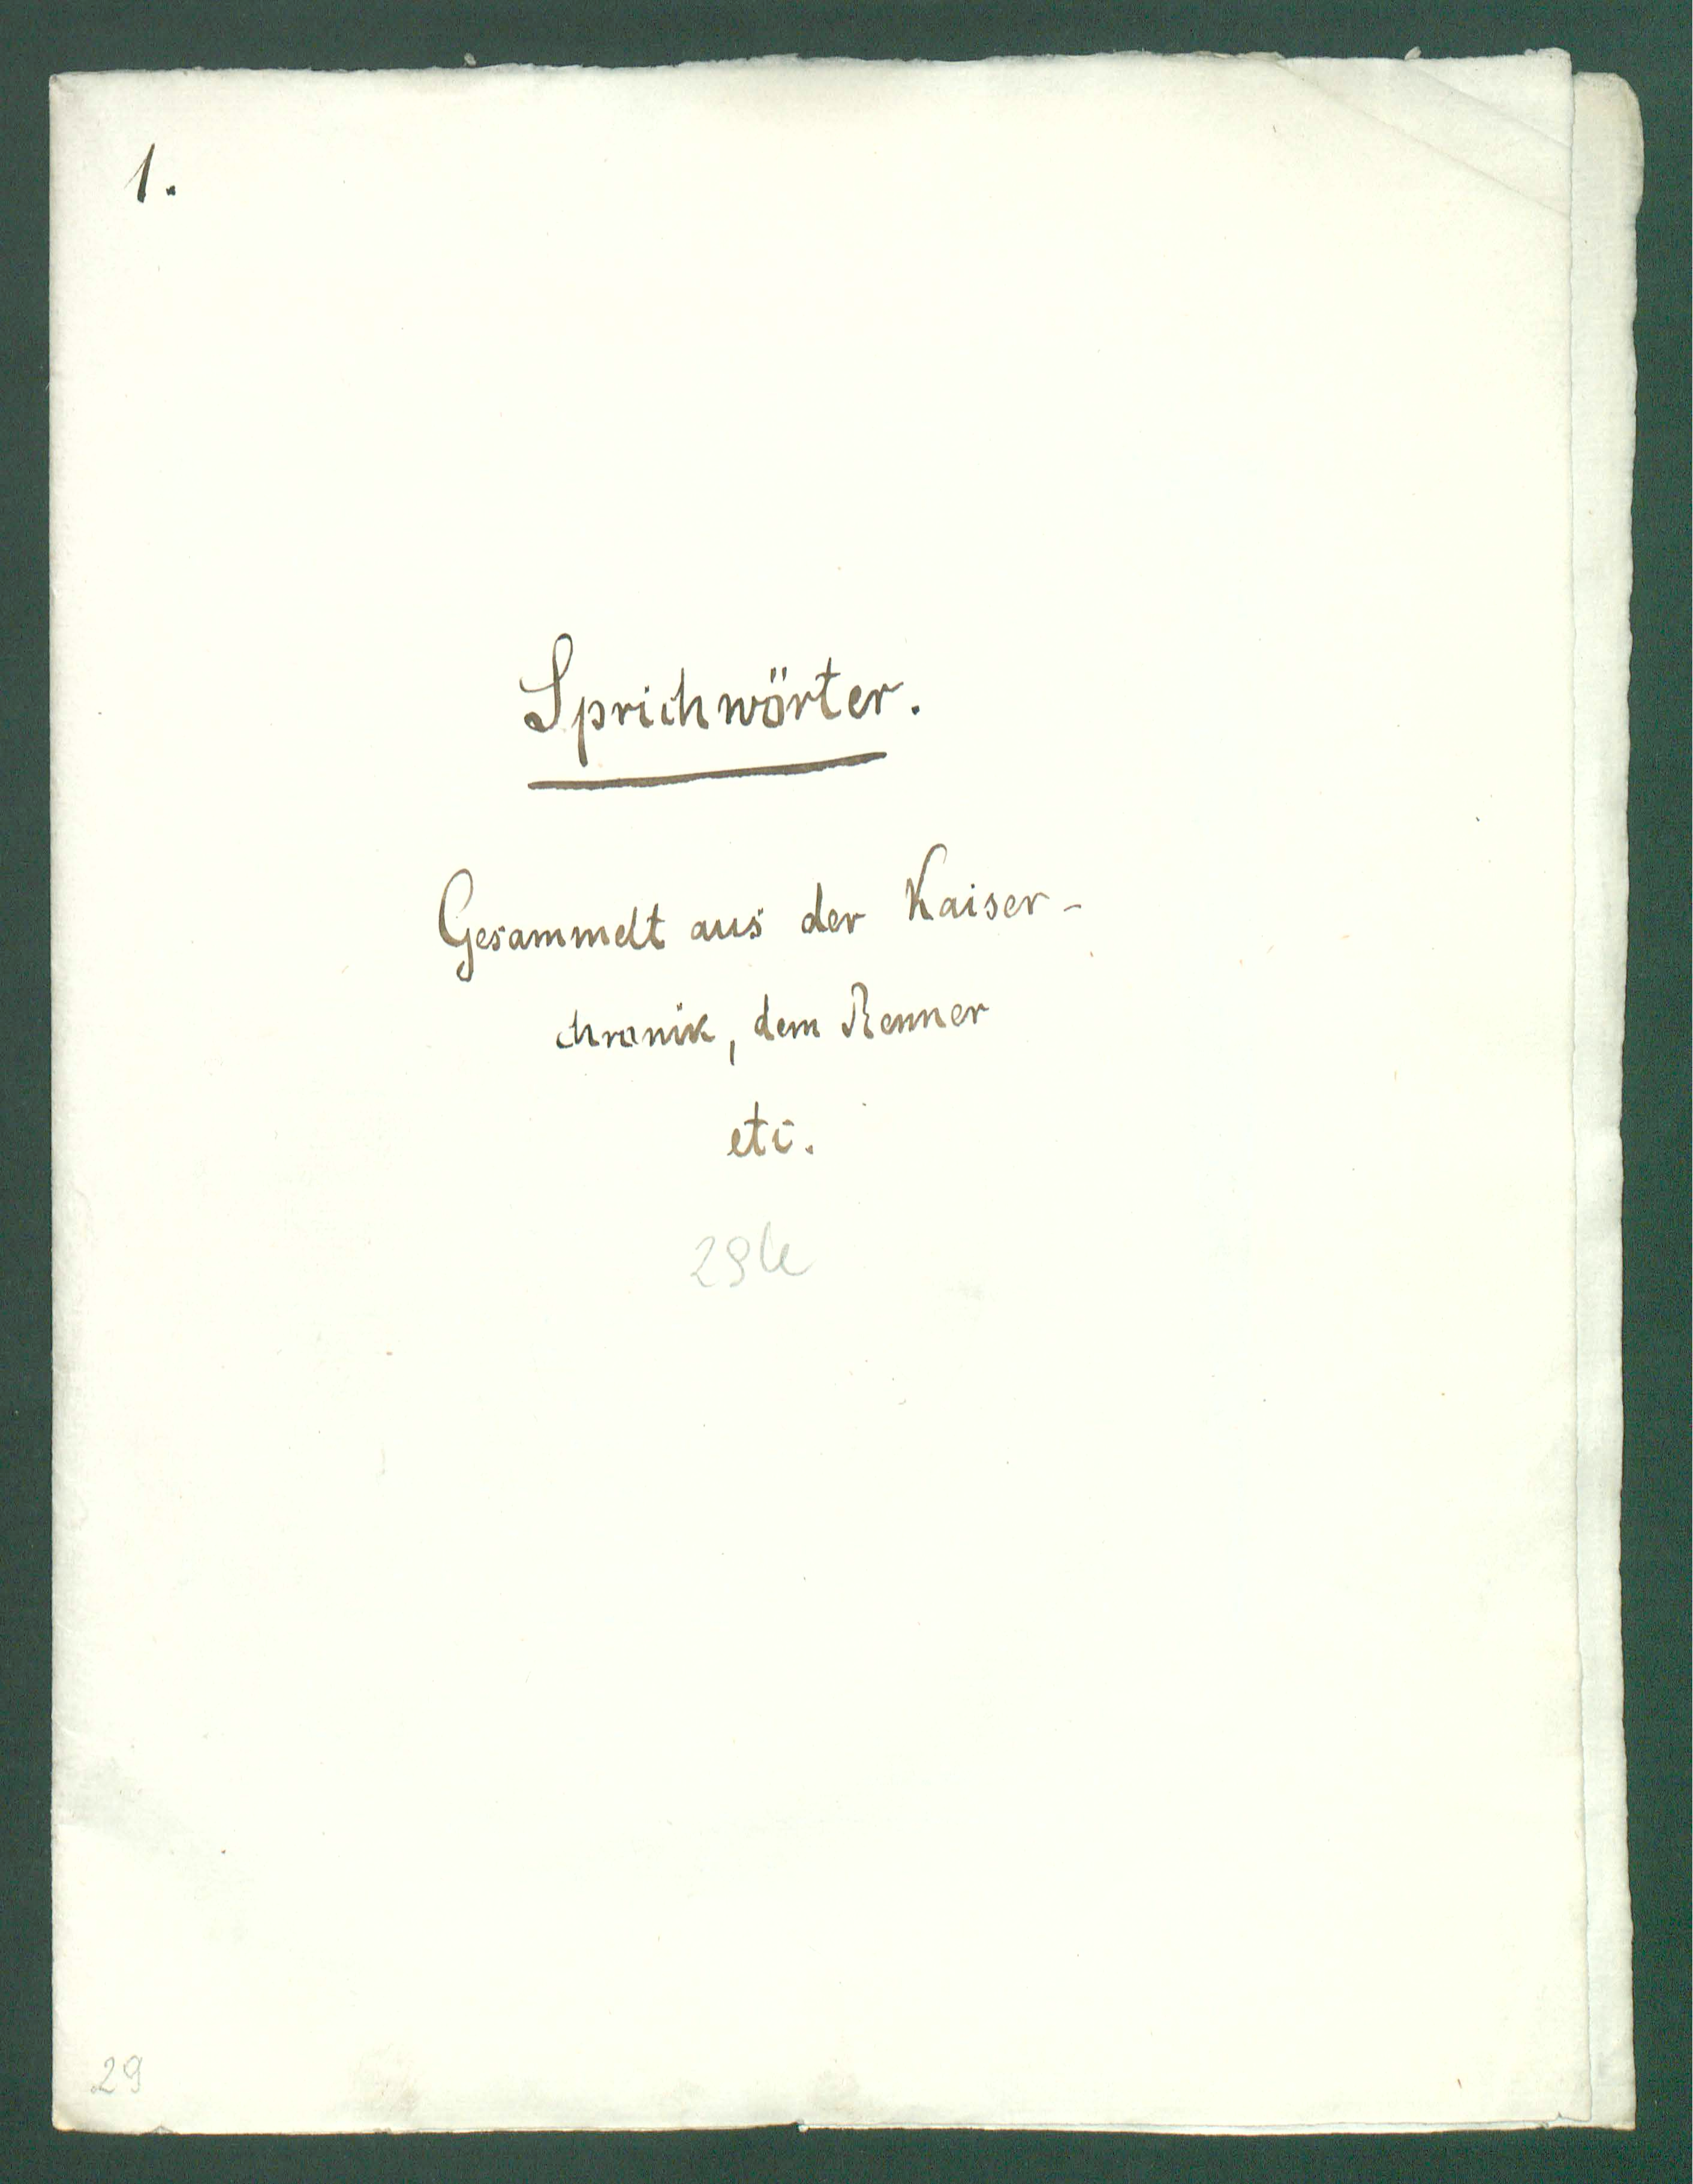 1.
Sprichwörter.
Gesammelt aus der Kaiser-
chronik, dem Renner
etc.
29